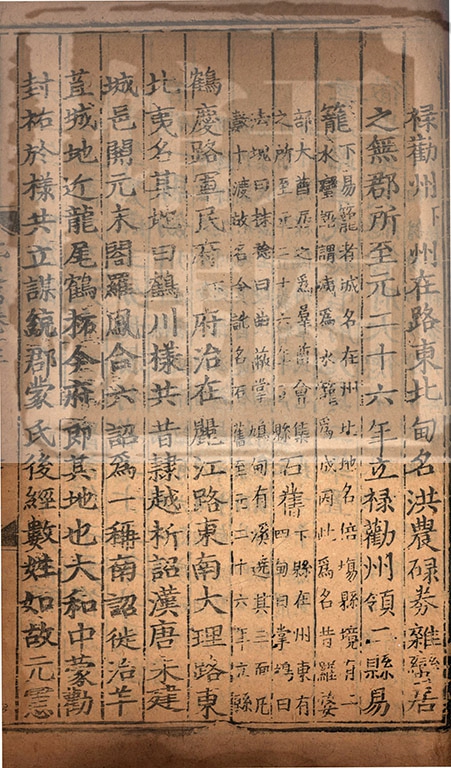 祿勸州下州在路東北甸名洪農碌券雜蠻居
之無郡所至元二十六年立祿勸州領二縣易
籠下易籠者城名在州北地名倍塲縣境有二
水蠻語謂洟爲水籠爲城因此爲名昔羅婺
部大酋居之爲羣酋會集
之所至元二十六年立縣
石舊下縣在州東有
四甸曰掌鳩曰
法塊曰抹捻曰曲蔽掌鳩甸有溪遶其三面凡
數十渡故名今訛名石舊至元二十六年立縣
鶴慶路軍民府下府治在麗江路東南大理路東
北夷名其地曰鶴川樣共昔隸越析詔漢唐未建
城邑開元末閣羅鳳合六詔爲一稱南詔徙治羊
苴城地近龍尾鶴柘今府即其地也大和中蒙勸
封祐於樣共立謀統郡蒙氏後經數姓如故元憲